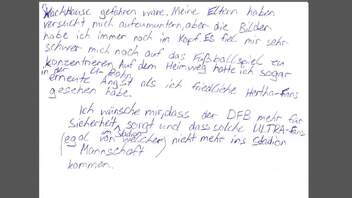 nachHause gefahren wäre. Meine Eltern haben
versucht mich aufzumuntern, aber die Bilder
habe ich immer noch im Kopf. Es fiel mir sehr
schwer mich noch auf das Fußballspiel zu
konzentrieren. Auf dem Heimweg hatte ich sogar
in der U-Bahn
erneute Angst als ich friedliche Hertha-Fans
gesehen habe.
Ich wünsche mir, dass der DFB mehr für
Sicherheit sorgt und dass solche ULTRA-Fans
im Stadion
(egal von welcher nicht mehr ins Stadion
Mannschaft)
kommen.